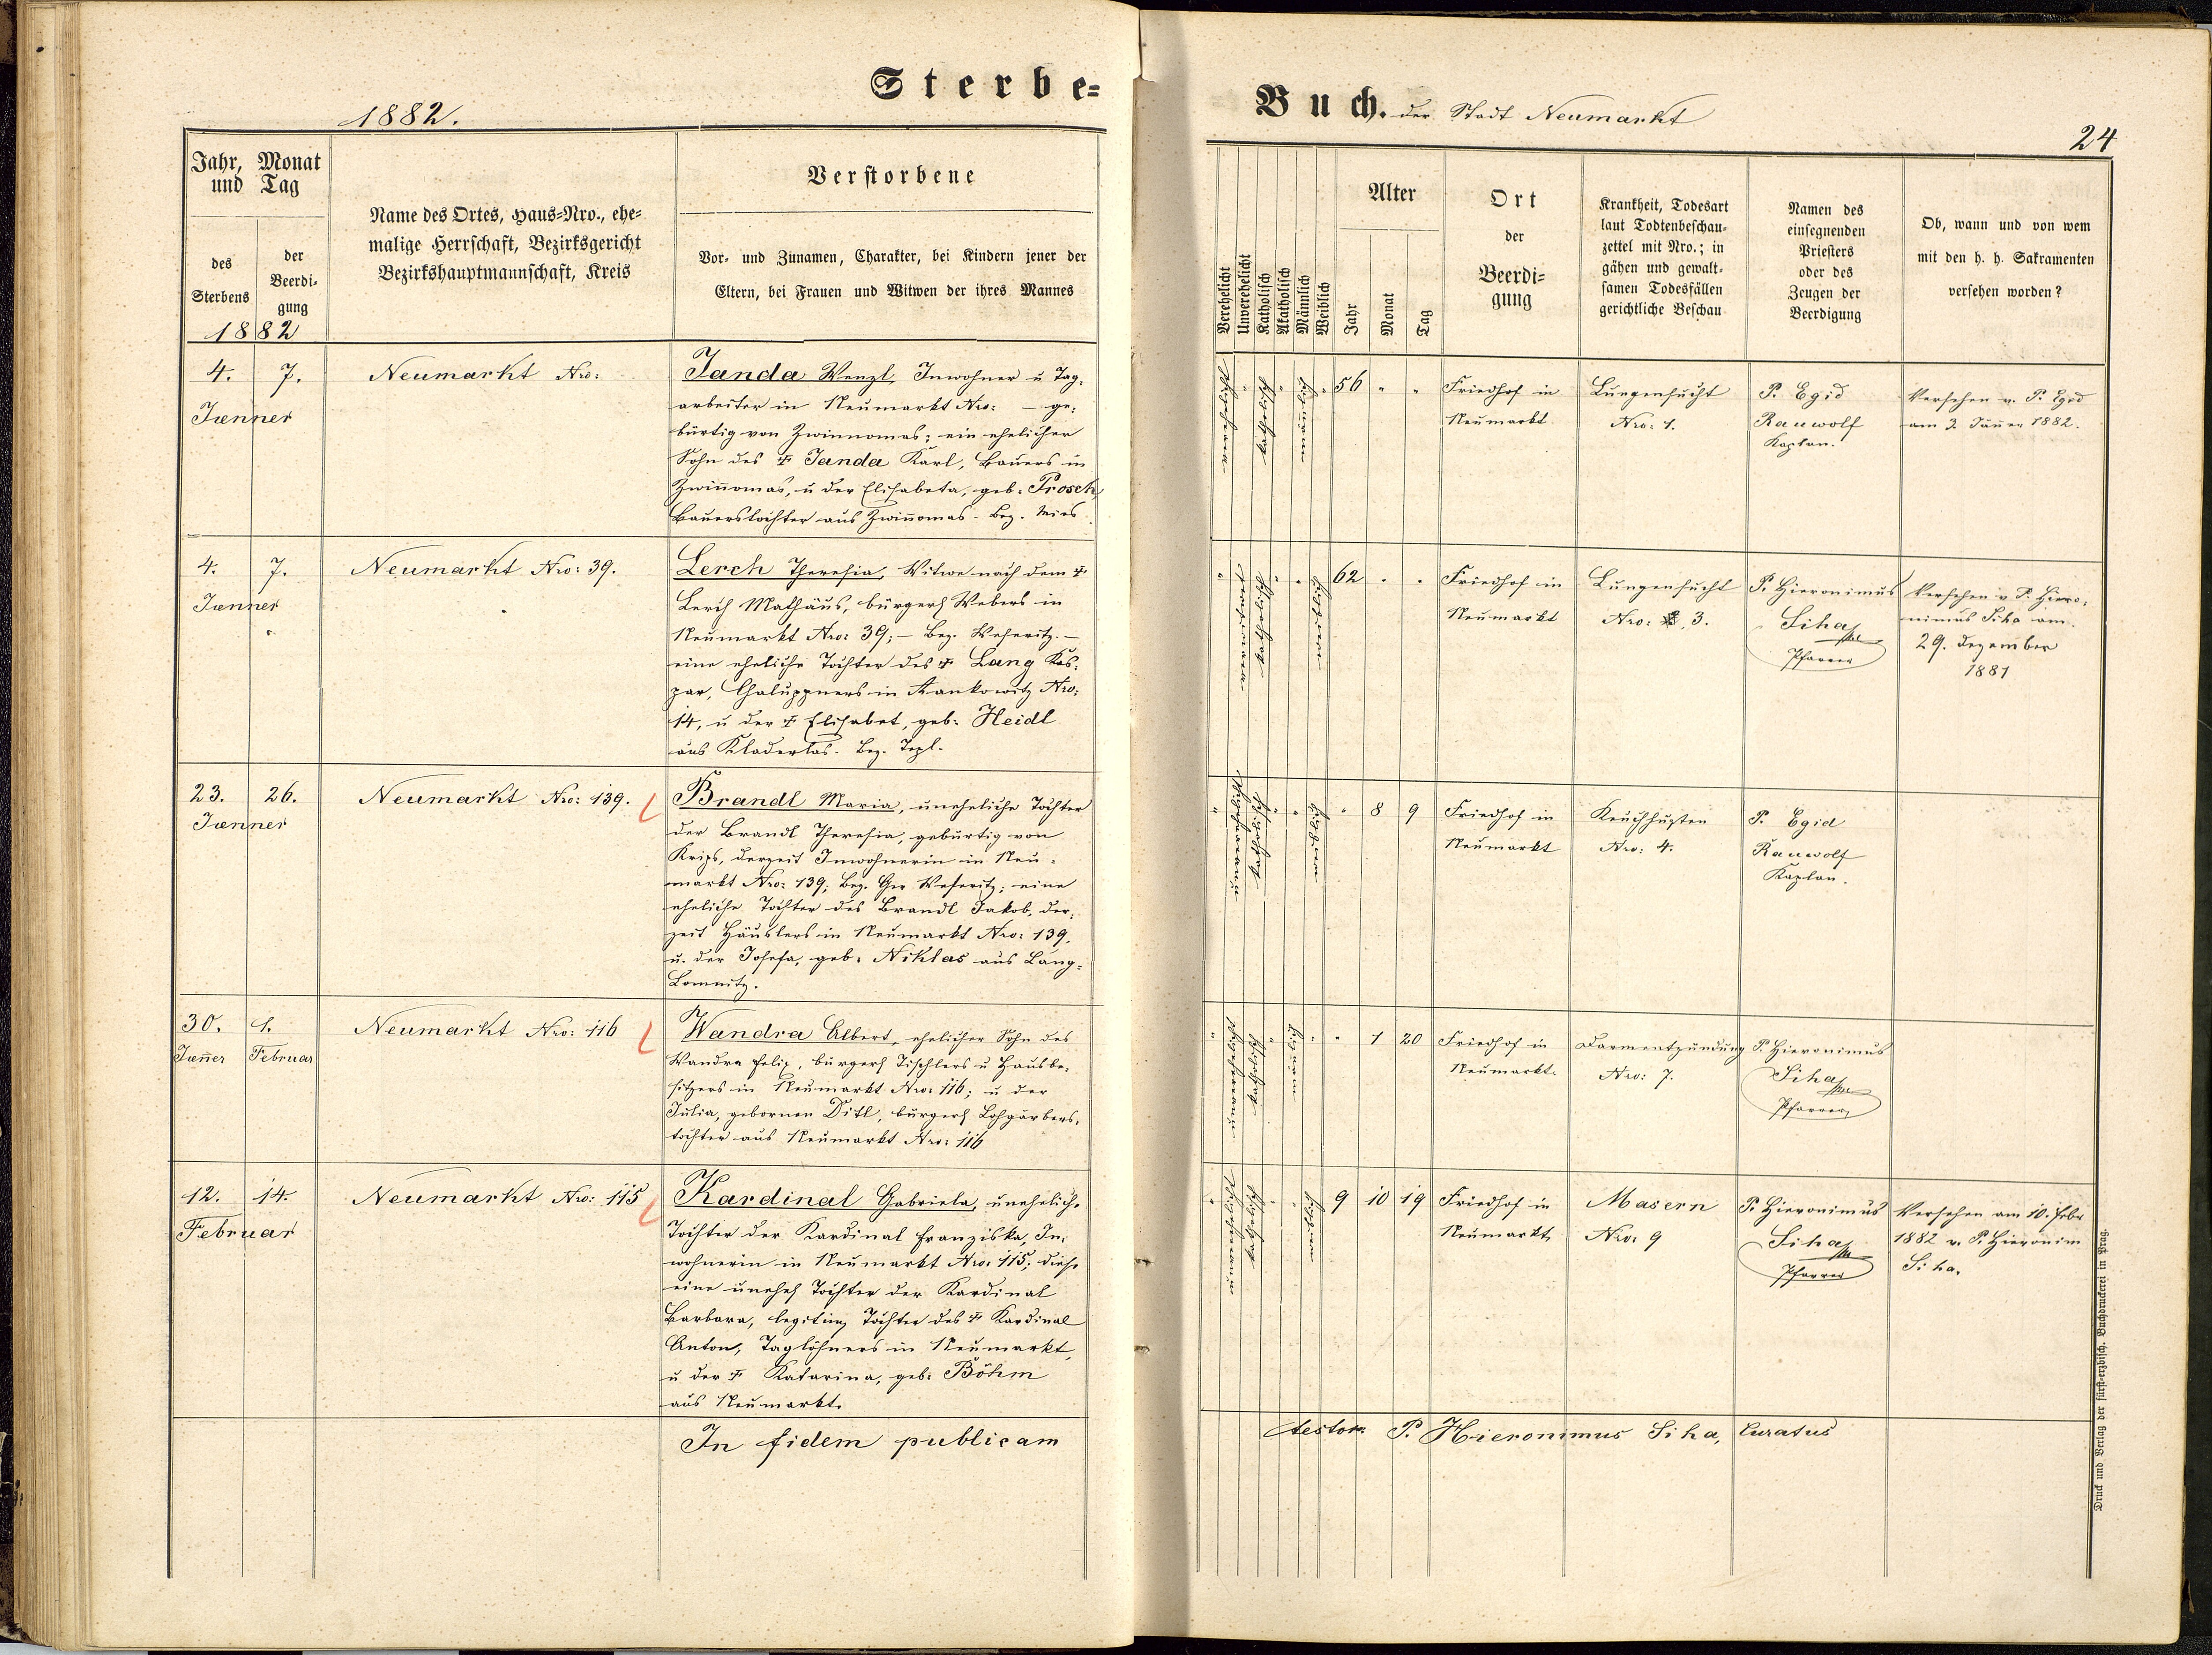 Sterbe-
1882.
Jahr, Monat
und Tag
des
Sterbens
der
Beerdi-
gung
1882
Name des Ortes, Haus-Nro., ehe-
malige Herrschaft, Bezirksgericht
Bezirkshauptmannschaft, Kreis
Verstorbene
Vor- und Zunamen, Charakter, bei Kindern jener der
Eltern, bei Frauen und Witwen der ihres Mannes
4. 7.
Jænner
Neumarkt Nro:
Janda Wenzl, Inwohner u Tag-
arbeiter in Neumarkt Nro: — ge-
bürtig von Zwinnomas; ein ehelicher
Sohn des † Janda Karl, Bauers in
Zwiñomas, u der Elisabeta, geb: Prosch
Bauerstochter aus Zwiñomas. Bez. Mies
4. 7.
Jænner
Neumarkt Nro: 39.
Lerch Theresia, Witwe nach dem †
Lerch Mathäus, bürgerl Webers in
Neumarkt Nro: 39; — Bez. Weseritz. —
eine eheliche Tochter des † Lang Kas-
par, Chaluppners in Hankowitz Nro:
14, u der † Elisabet, geb: Heidl
aus Kladerlas. Bez. Tepl.
23. 26.
Jænner
Neumarkt Nro: 139.
Brandl Maria, uneheliche Tochter
der Brandl Theresia, gebürtig von
Krips, derzeit Inwohnerin in Neu-
markt Nro: 139; Bez. Ger Weseritz; eine
eheliche Tochter des Brandl Jakob, der-
zeit Häuslers in Neumarkt Nro: 139,
u. der Josefa, geb: Niklas aus Lang-
Lomnitz.
30. 1.
Jæñer Februar
Neumarkt Nro: 116
Wandra Albert, ehelicher Sohn des
Wandra Felix, bürgerl Tischlers u Hausbe-
sitzers in Neumarkt Nro: 116; u der
Julia, gebornen Ditl, bürgerl Lohgärbers-
tochter aus Neumarkt Nro: 116
12. 14.
Februar
Neumarkt Nro: 115
Kardinal Gabriela, unehelich-
Tochter der Kardinal Franziska, In-
wohnerin in Neumarkt Nro: 115; diese
eine unehel Tochter der Kardinal
Barbara, legitim Tochter des † Kardinal
Anton, Taglöhners in Neumarkt,
u der † Katarina, geb: Böhm
aus Neumarkt.
In fidem publicam
Buch. der Stadt Neumarkt
24
Verehelicht
Unverehelicht
Katholisch
Akatholisch
Männlich
Weiblich
Alter
Jahr
Monat
Tag
Ort
der
Beerdi-
gung
Krankheit, Todesart
laut Todtenbeschau-
zettel mit Nro.; in
gähen und gewalt-
samen Todesfällen
gerichtliche Beschau
Namen des
einsegnenden
Priesters
oder des
Zeugen der
Beerdigung
Ob, wann und von wem
mit den h. h. Sakramenten
versehen worden?
56 " "
Friedhof in
Neumarkt
Lungensucht
Nro: 1.
P. Egid
Rauwolf
Kaplan.
Versehen v. P. Egid
am 2. Jäner 1882.
62 " "
Friedhof in
Neumarkt
Lungensucht
Nro: 3.
P. Hieronimus
Siha
Pfarrer
Versehen v P. Hiero-
nimus Siha am
29. Dezember
1881
" 8 9
Friedhof in
Neumarkt
Keuchhusten
Nro: 4.
P. Egid
Rauwolf
Kaplan.
" 1 20
Friedhof in
Neumarkt.
Darmentzündung
Nro: 7.
P. Hieronimus
Siha
Pfarrer
9 10 19
Friedhof in
Neumarkt
Masern
Nro: 9
P. Hieronimus
Siha
Pfarrer
Versehen am 10. Febr
1882 v. P. Hieronim
Siha.
testor. P. Hieronimus Siha, Curatus
Druck und Verlag der fürst-erzbisch. Buchdruckerei in Prag.